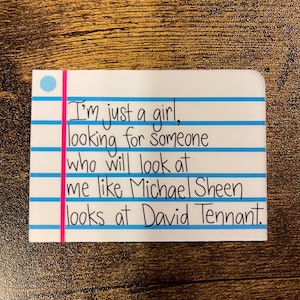 I'm just a girl,
looking for someone
who will look at
me like Michael Sheen
looks at David Tennant.